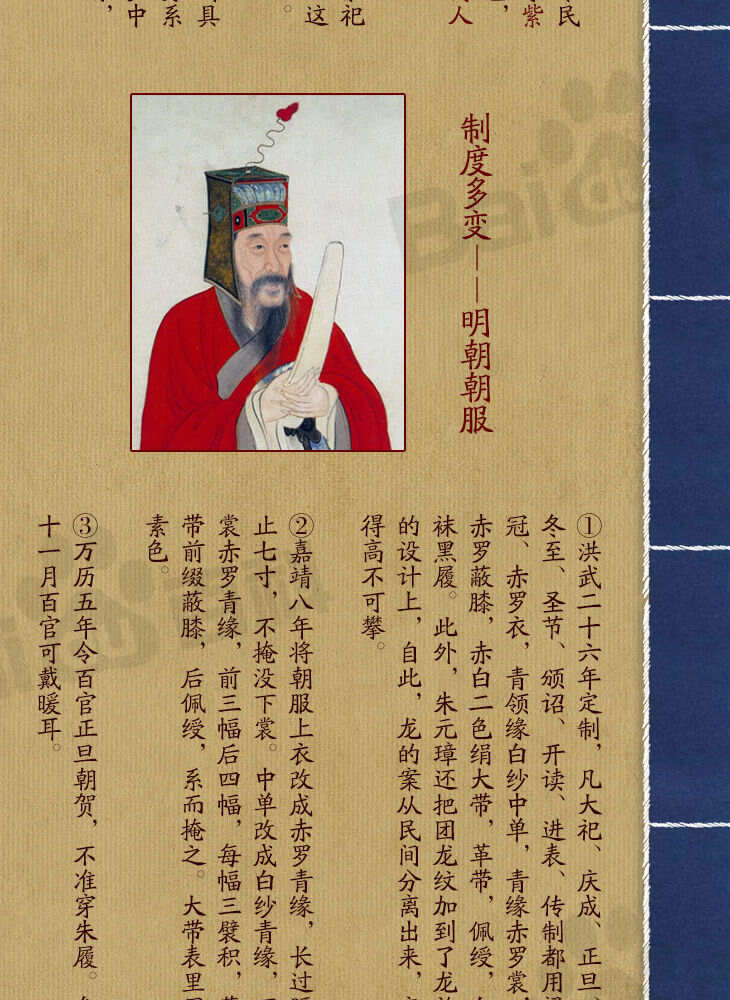 民
紫
人
祀
这
具
系
中
制度多变——明朝朝服
①洪武二十六年定制，凡大祀、庆成、正旦
冬至、圣节、颁诏、开读、进表、传制都用
冠、赤罗衣，青领缘白纱中单，青缘赤罗裳，
赤罗蔽膝，赤白二色绢大带，革带，佩绶，
袜黑履。此外，朱元璋还把团龙纹加到了龙
的设计上，自此，龙的案从民间分离出来，
得高不可攀。
②嘉靖八年将朝服上衣改成赤罗青缘，长过
止七寸，不掩没下裳。中单改成白纱青缘，
裳赤罗青缘，前三幅后四幅，每幅三襞积，
带前缀蔽膝，后佩绶，系而掩之。大带表里
素色。
③万历五年令百官正旦朝贺，不准穿朱履。
十一月百官可戴暖耳。
Bai